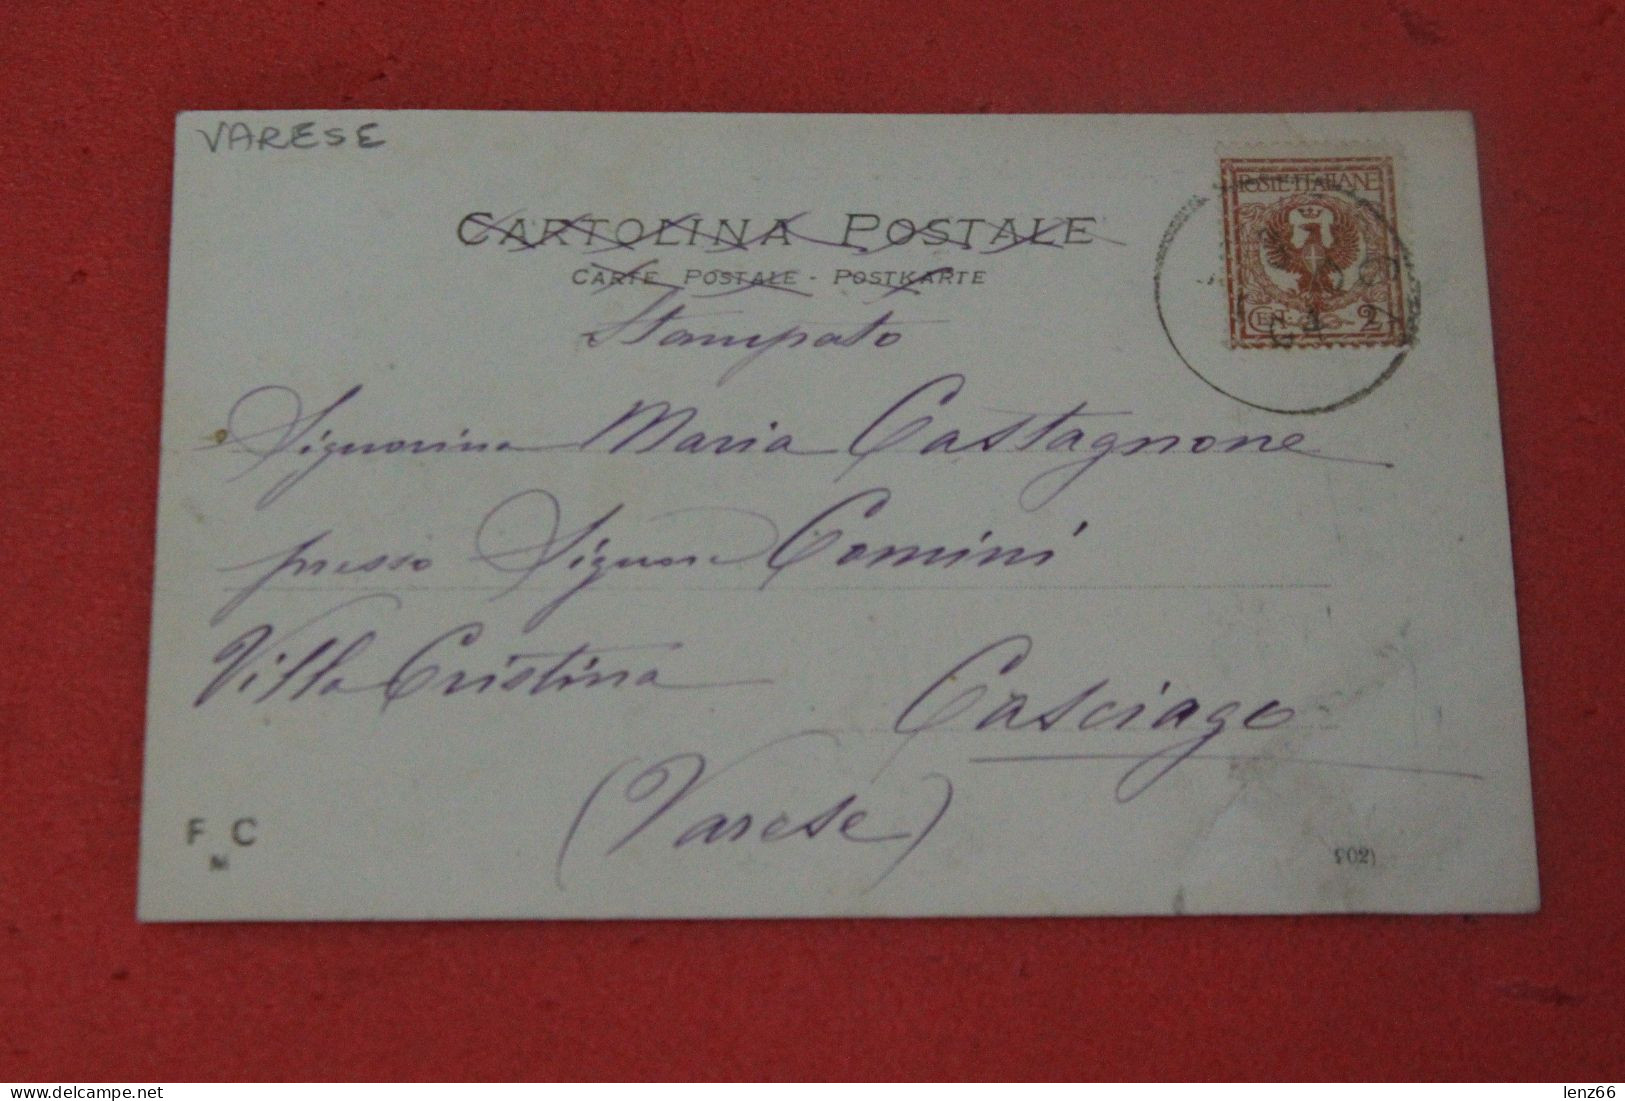 VARESE
CARTOLINA POSTALE
CARTE POSTALE - POSTKARTE
POSTE ITALIANE
CEN. 2
Stampato
Signorina Maria Castagnone
presso Signor Comini
Villa Cristina
Casciago
(Varese)
F M C
lenz66